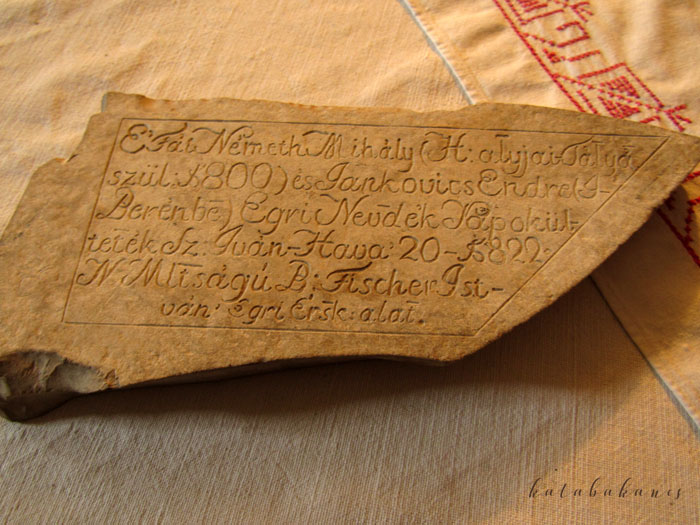 E'Fát Németh Mihály (H: alyjai Tállyá
szül: 1800) és Jankovics Endre (J-
Berénbe) Egri Nevdék Pápokúl-
tették Sz: Iván-Hava 20-1822:
N: Mltságú B: Fischer Ist-
ván' Egri Érsk: alat.
katabakancs